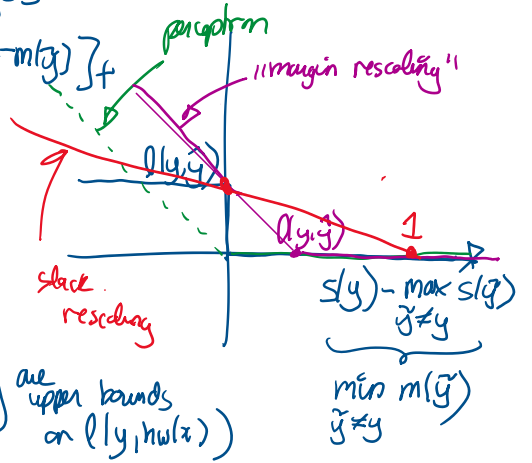 perceptron
-m(ỹ)]₊
"margin rescaling"
l(y,ỹ)
l(y,ỹ)
1
slack
rescaling
s(y) - max s(ỹ)
ỹ≠y
min m(ỹ)
ỹ≠y
are
upper bounds
on l(y, hw(x))